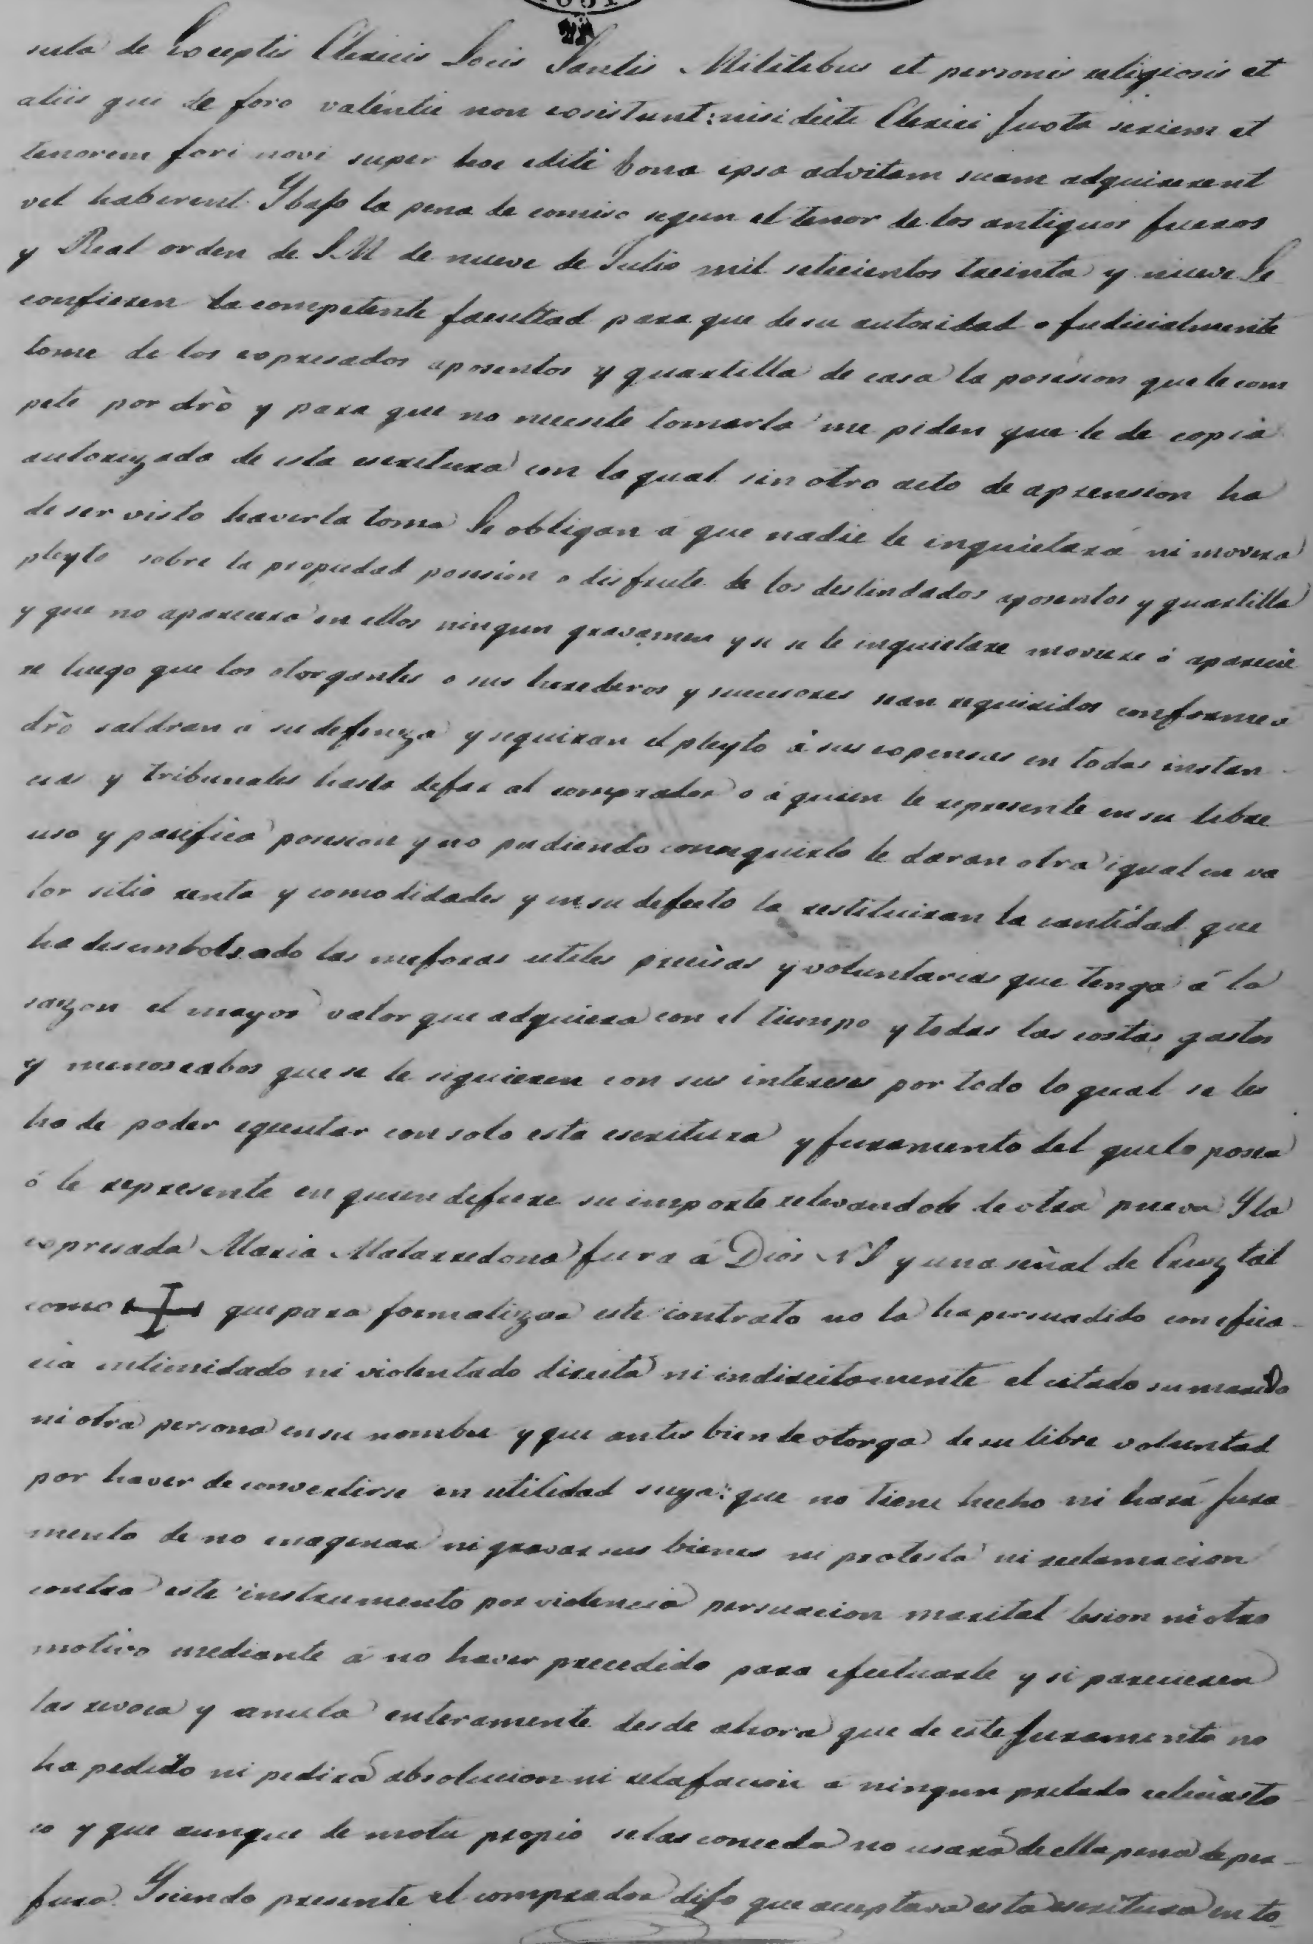 sula de Exceptis Clericis Locis Santis Militibus et personis religiosis et
aliis qui de foro valentie non exsistunt: nisi dicti Clerici Juxta seriem et
tenorem fori novi super hoc editi bona ipsa advitam suam adquirerent
vel haberent. Y bajo la pena de comiso segun el tenor de los antiguos fueros
y Real orden de S.M. de nueve de Julio mil setecientos treinta y nueve Le
confieren la competente facultad para que de su autoridad o Judicialmente
tome de los expresados aposentos y quartilla de casa la posesion que le com
pete por dro y para que no necesite tomarla me piden que le de copia
autorizada de esta escritura con la qual sin otro acto de aprension ha
de ser visto haverla toma Se obligan á que nadie le inquietará ni movera
pleyto sobre la propiedad posesion o disfrute de los deslindados aposentos y quartilla
y que no aparecera en ellos ningun gravamen y si se le inquietare moviere ó aparecie
re luego que los otorgantes o sus herederos y sucesores sean requiridos conforme a
dro saldran a su defenza y seguiran el pleyto á sus expensas en todas instan-
cias y tribunales hasta dejar al comprador o á quien le represente en su libre
uso y pacifica posesion y no pudiendo conseguirlo le daran otra igual en va
lor sitio renta y comodidades y en su defecto la restituiran la cantidad que
ha desembolsado las mejoras utiles precisas y voluntarias que tenga á la
sazon el mayor valor que adquiera con el tiempo y todas las costas gastos
y menoscabos que se le siguieren con sus intereses por todo lo qual se les
ha de poder egecutar con solo esta escritura y juramento del que lo posea
ó le represente en quien defiere su importe relevandole de otra prueva Y la
expresada Maria Matarredona jura á Dios N.S. y una señal de Cruz tal
como que para formalizar este contrato no la ha persuadido con efica-
cia intimidado ni violentado directa ni indirectamente el citado su marido
ni otra persona en su nombre y que antes bien le otorga de su libre voluntad
por haver de convertirse en utilidad suya: que no tiene hecho ni hará jura
mento de no enagenar ni gravar sus bienes ni protesta ni reclamacion
contra este instrumento por violencia persuacion marital lesion ni otro
motivo mediante á no haver precedido para efectuarle y si parecieren
las revoca y anula enteramente desde ahora que de este juramento no
ha pedido ni pedirá absolucion ni relajacion á ningun prelado eclesiasti
co y que aunque de motu propio se las conceda no usará de ella pena de per-
jura. Y siendo presente el comprador dijo que aceptava esta escritura en to